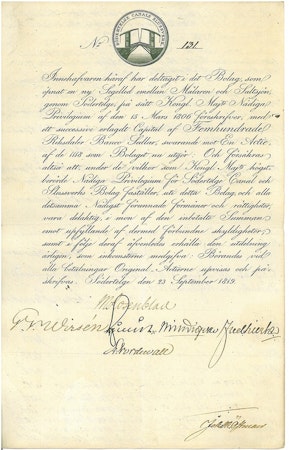 SÖDERTELJE CANALS
No 131.
Innehafvaren häraf har deltagit i det Bolag, som
öpnat en ny Segelled emellan Mälaren och Saltsjön,
genom Södertelge, på sätt Kongl. Mayts Nådiga
Privilegium af den 15 Mars 1806 föreskrifver, med
ett successive erlagdt Capital af Femhundrade
Riksdaler Banco Sedlar, svarande mot En Actie
af de 1118 som Bolaget nu utgör. Och försäkras
altså att under de villkor som Kongl. Mayts högst-
berörde Nådiga Privilegium för Södertelge Canal och
Slussverks Bolag fastställer, uti detta Bolag, och alla
detsamma Nådigst förunnade förmåner och rättigheter,
vara delaktig, i mon af den inbetalte Summan
emot uppfyllande af dermed förbundne skyldigheter,
samt i följe deraf äfvenledes erhålla den utdelning
årligen, som inkomsterne medgifva: Börandes vid
alla Betalningar Original Actierne upvisas och på-
skrifvas. Södertelge den 23 September 1819.
M. Rosenblad